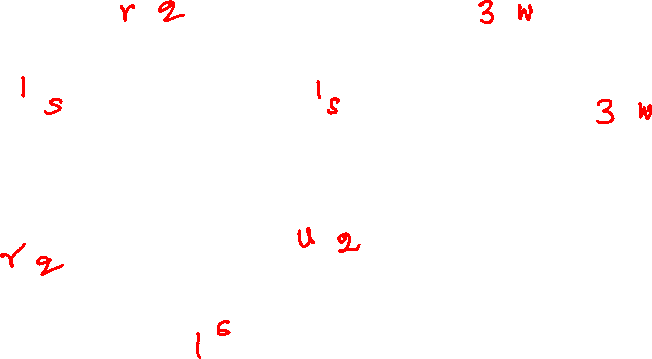 r 2 3 w
1 s 1 s 3 w
r 2 u 2
1 s